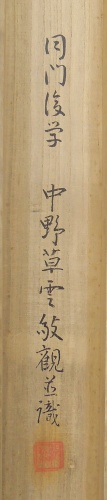 同門後学 中野草雲敬観並識